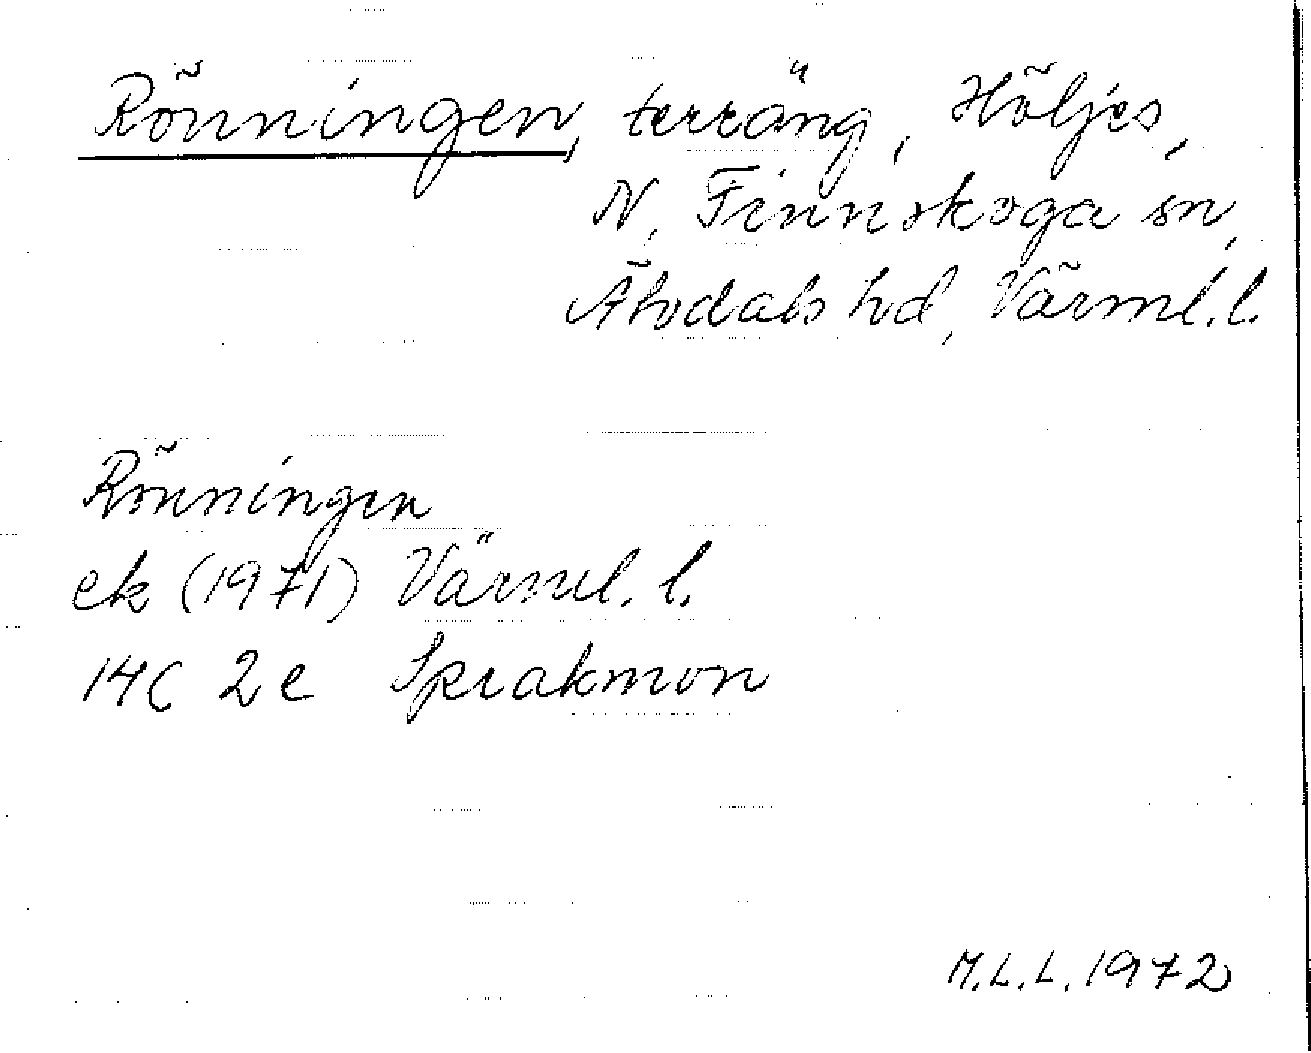 Rönningen, terräng, Höljes,
N. Finnskoga sn,
Älvdals hd, Värml. l.
Rönningen
ek (1971) Värml. l.
14C 2e Sprakmon
M.L.L. 1972